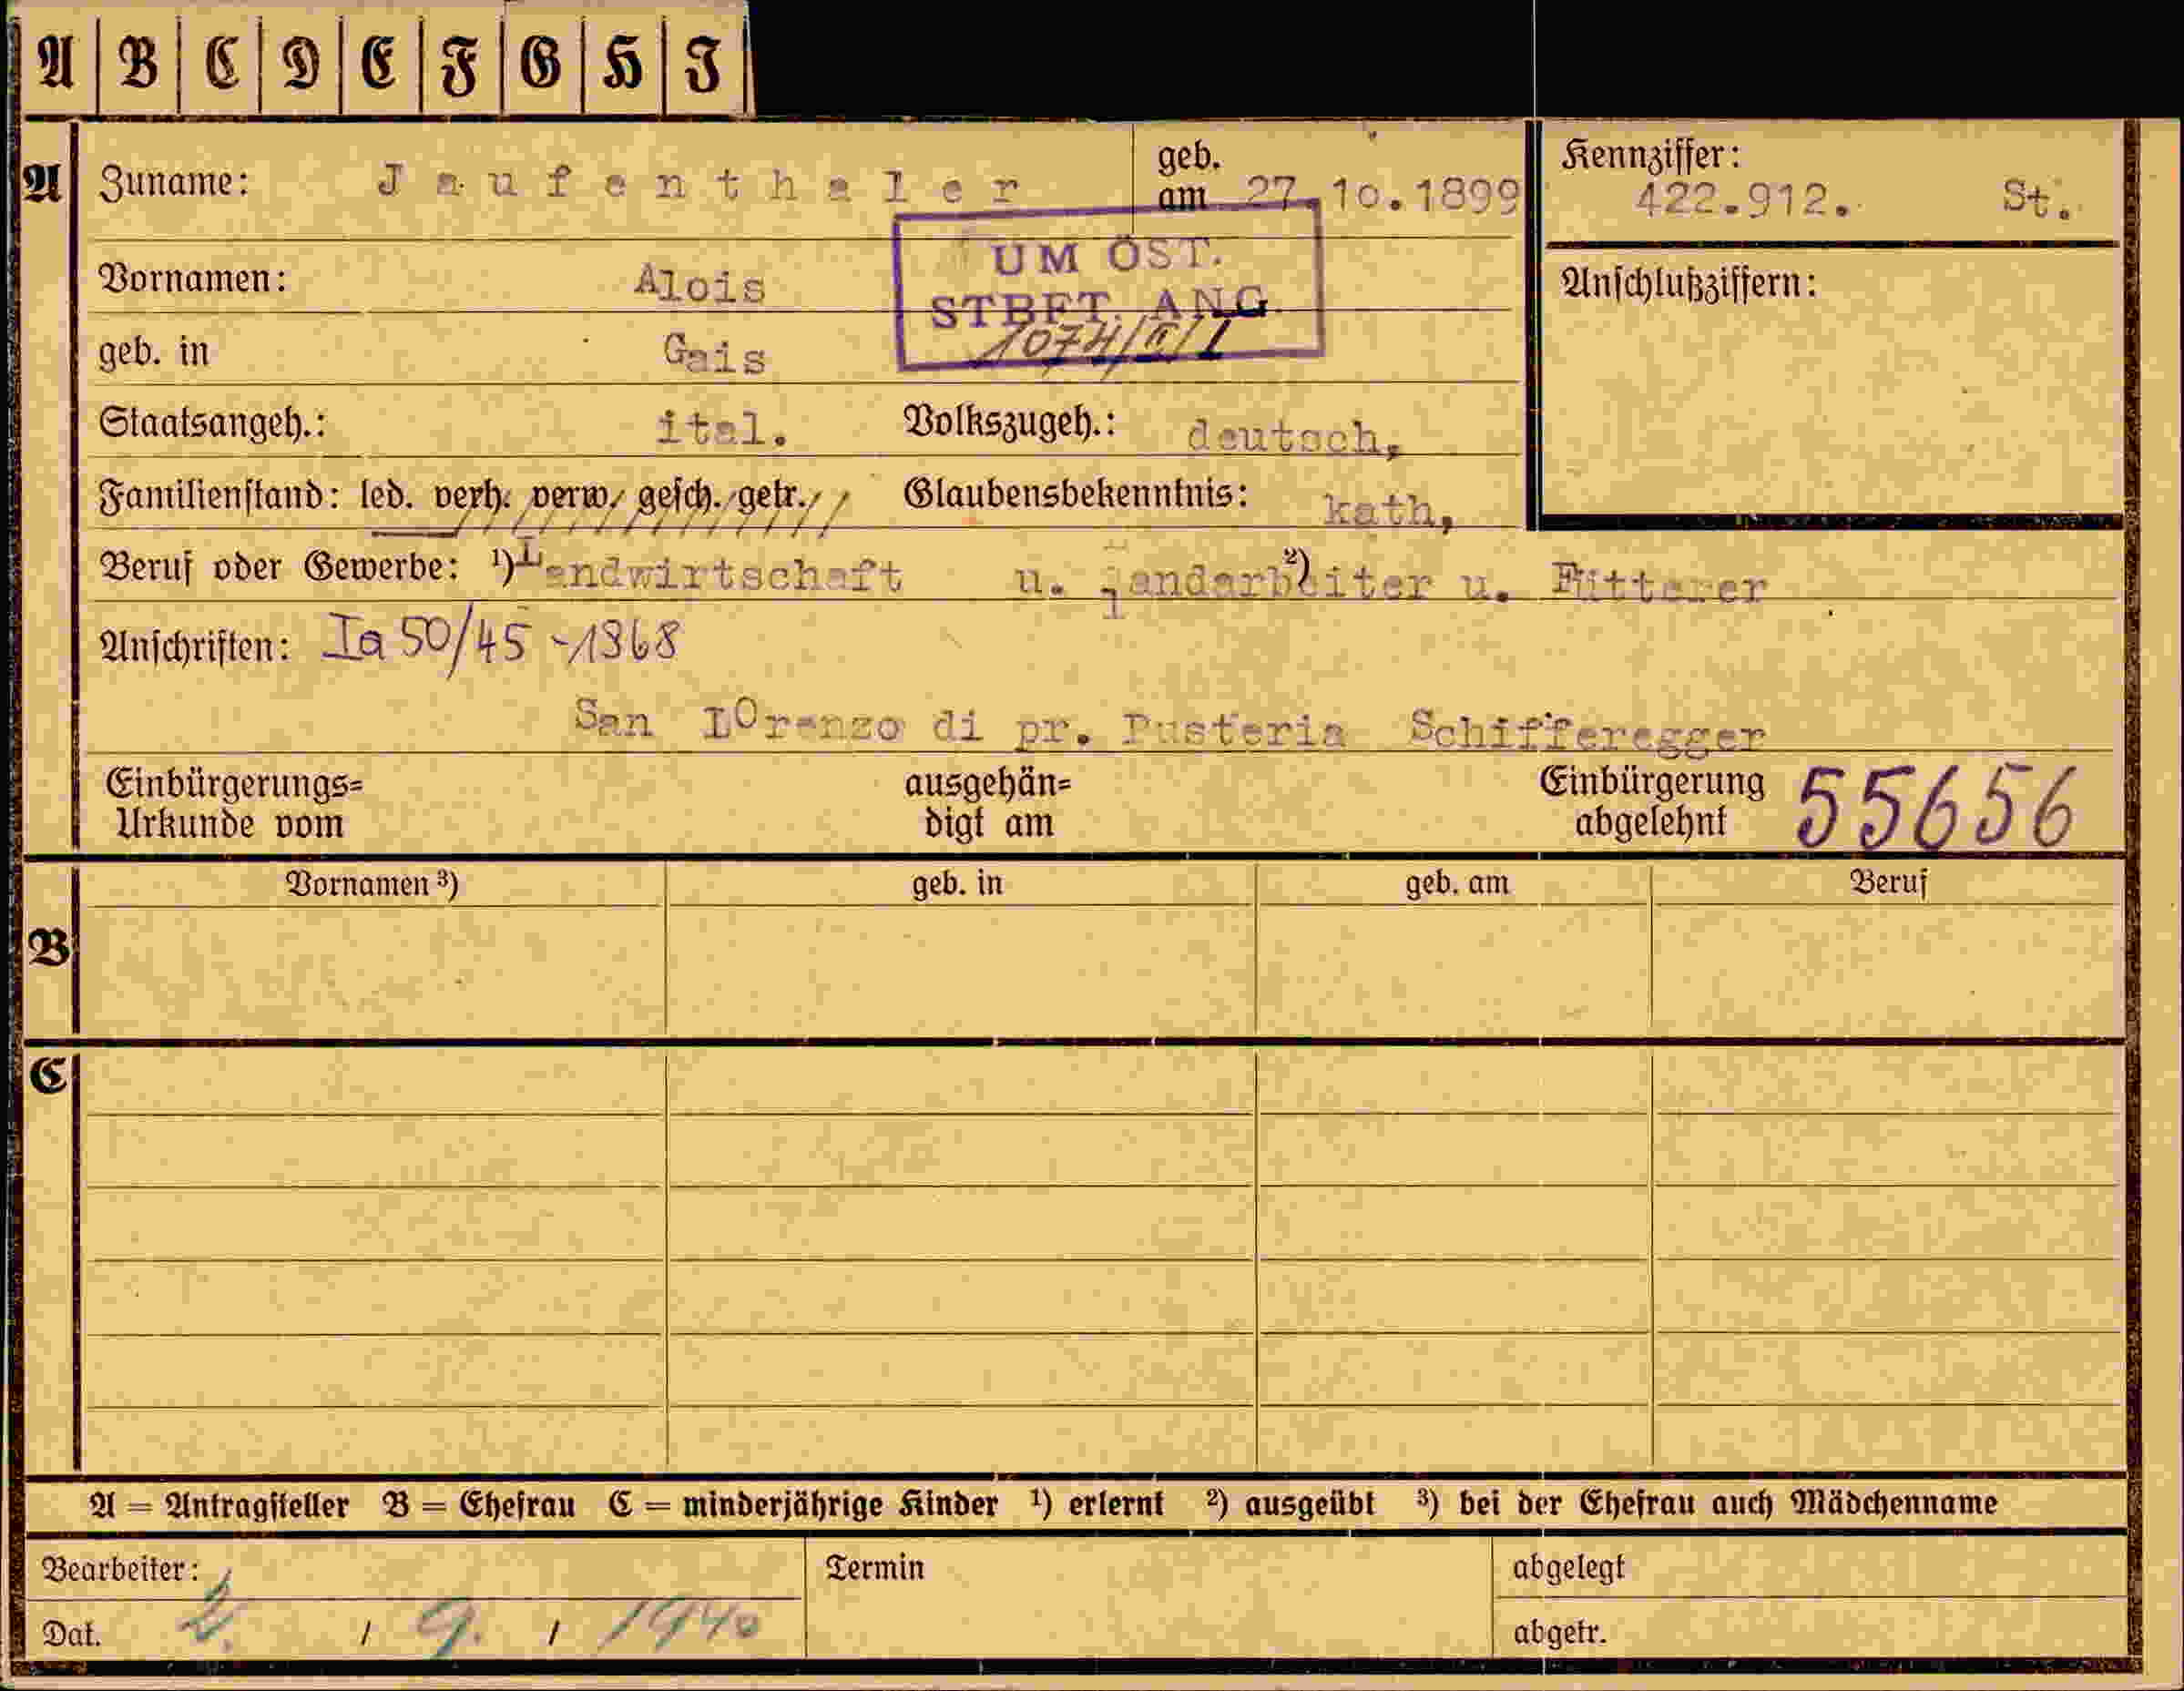 A B C D E F G H I
A Zuname: Jaufenthaler geb. am 27.10.1899 Kennziffer: 422.912. St.
UM ÖST. STBFT. ANG.
1074/II/1
Vornamen: Alois Anschlußziffern:
geb. in Gais
Staatsangeh.: ital. Volkszugeh.: deutsch,
Familienstand: led. verh. verw. gesch. getr. Glaubensbekenntnis: kath,
Beruf oder Gewerbe: ¹) Landwirtschaft u. ²) landarbeiter u. Fütterer
Anschriften: Ia 50/45 - 1368
San LOrenzo di pr. Pusteria Schifferegger
Einbürgerungs= Urkunde vom ausgehän= digt am Einbürgerung abgelehnt 55656
Vornamen ³) geb. in geb. am Beruf
B
C
A = Antragsteller B = Ehefrau C = minderjährige Kinder ¹) erlernt ²) ausgeübt ³) bei der Ehefrau auch Mädchenname
Bearbeiter: Termin abgelegt
Dat. 2. / 9. / 1940 abgetr.